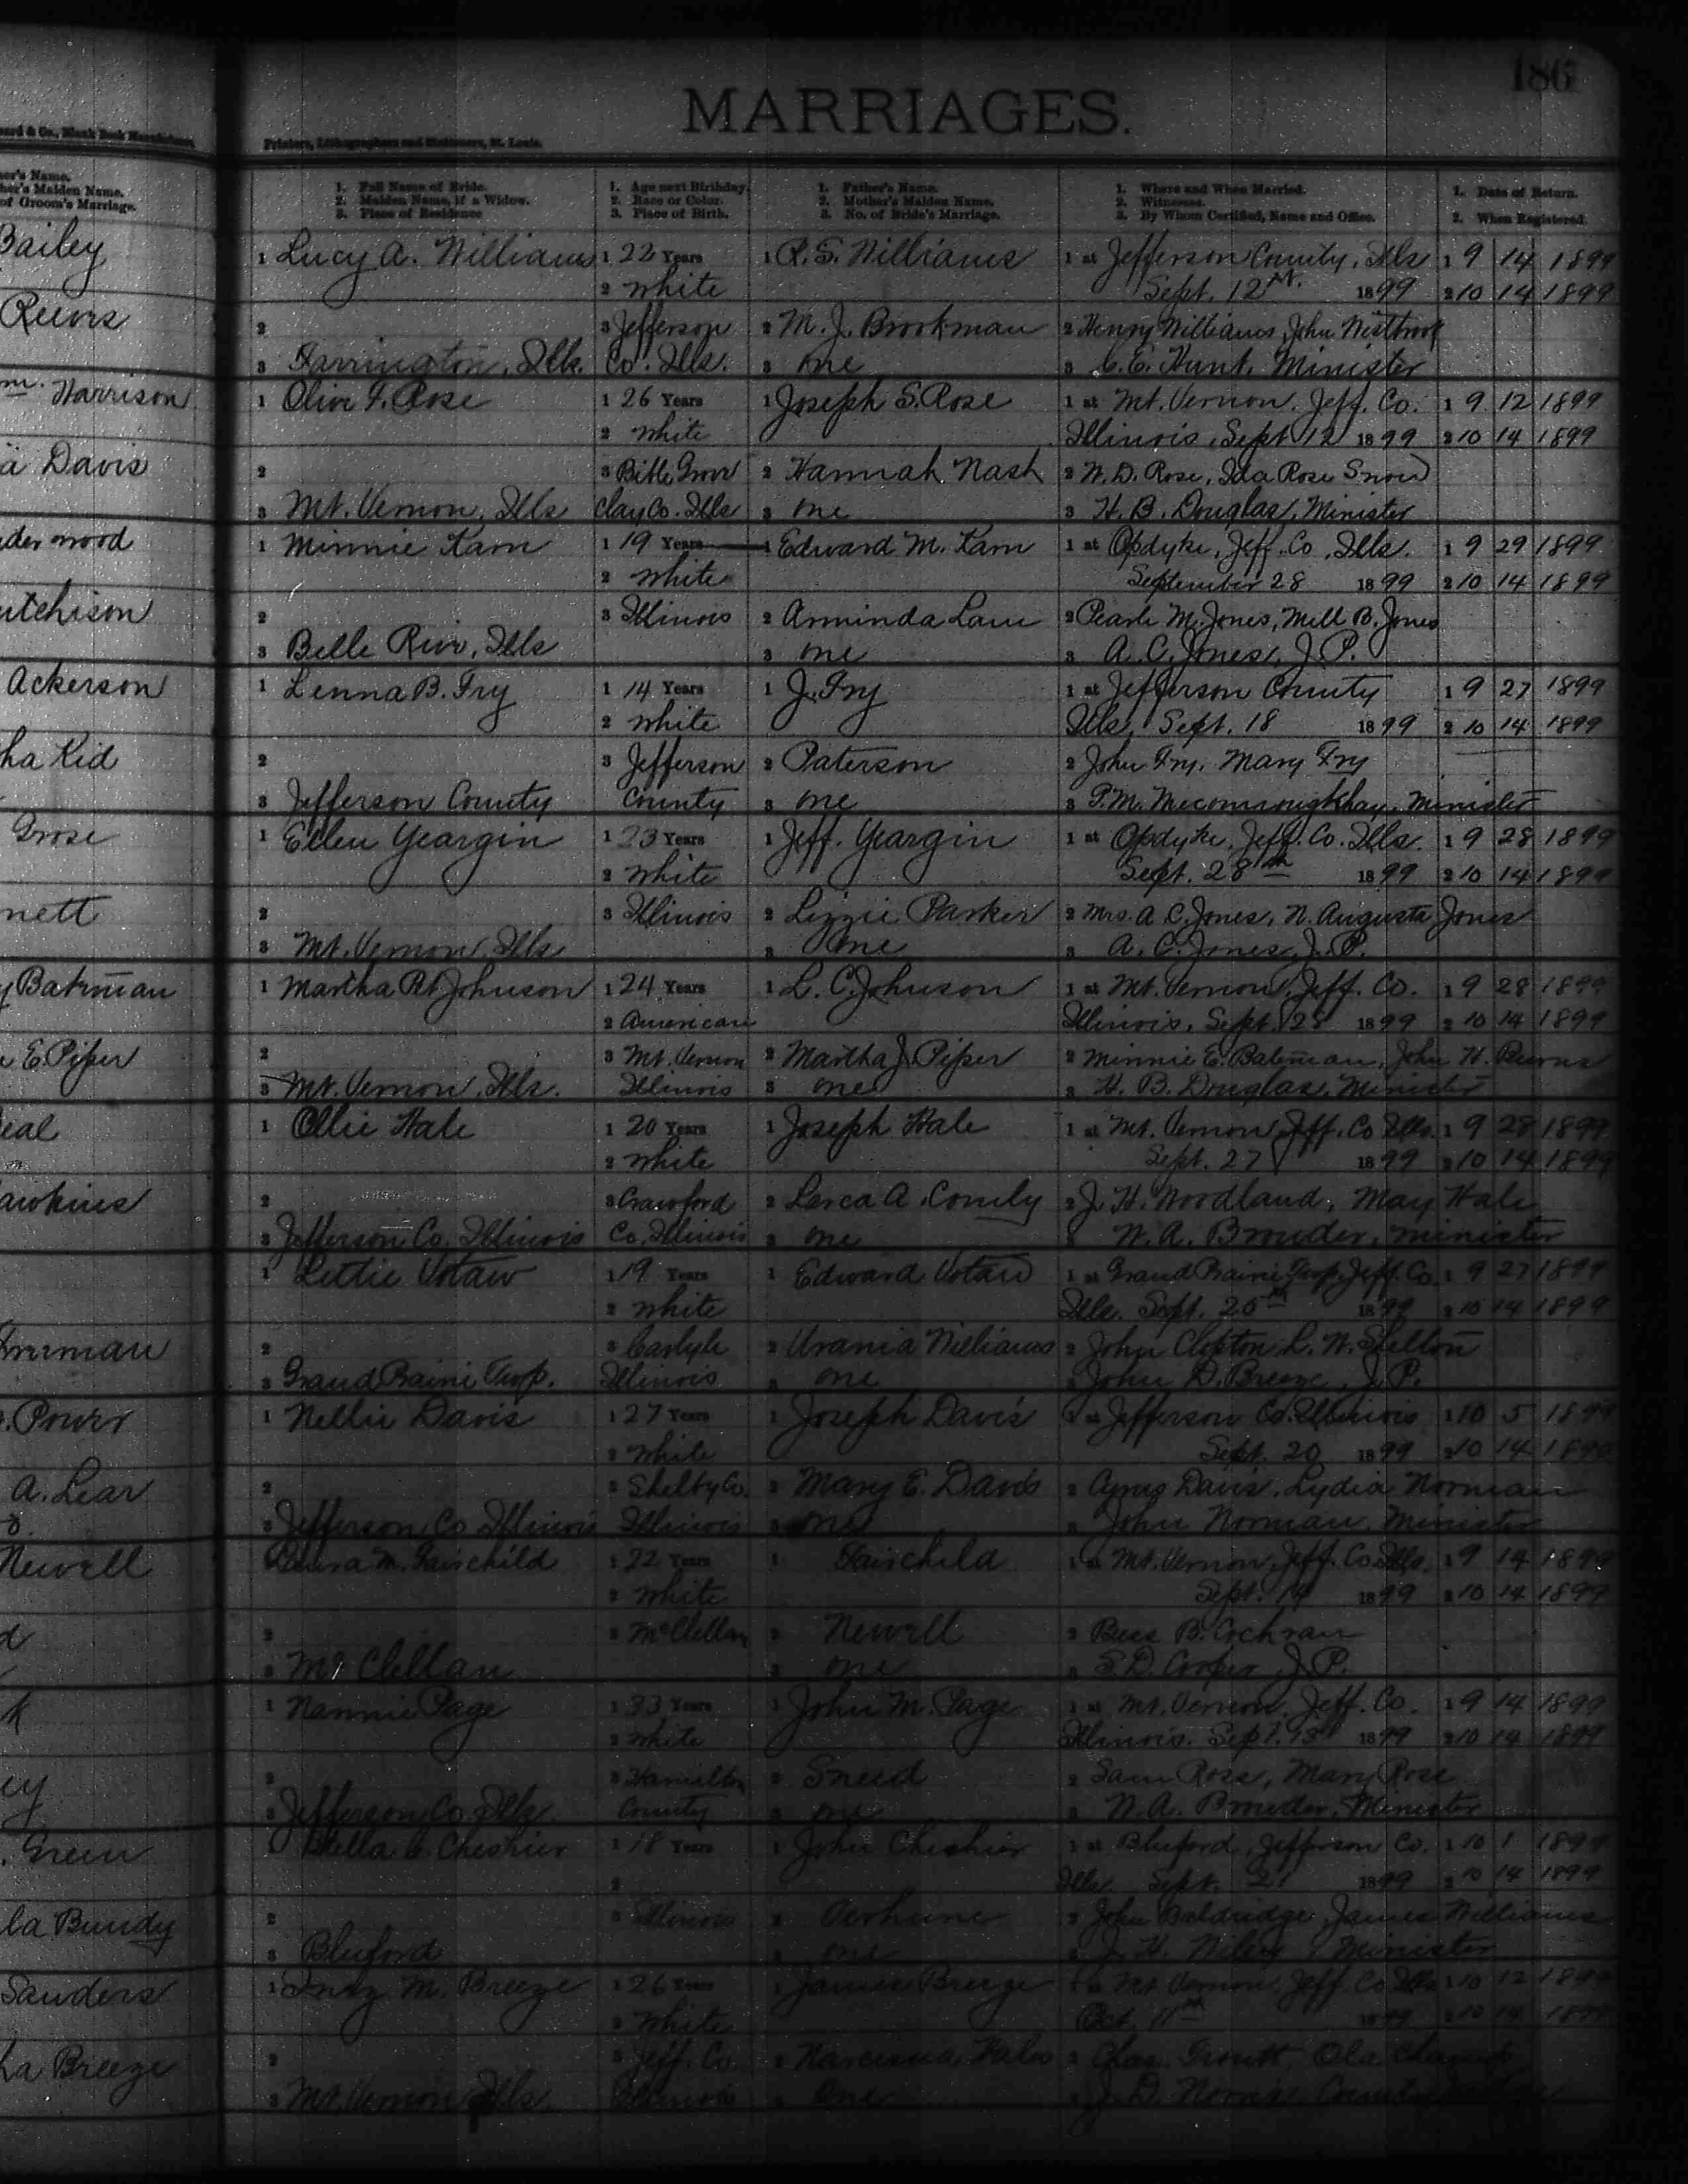 186
MARRIAGES.
Printers, Lithographers and Stationers, St. Louis.
1. Full Name of Bride. 2. Maiden Name, if a Widow. 3. Place of Residence
1. Age next Birthday. 2. Race or Color. 3. Place of Birth.
1. Father's Name. 2. Mother's Maiden Name. 3. No. of Bride's Marriage.
1. Where and When Married. 2. Witnesses. 3. By Whom Certified, Name and Office.
1. Date of Return. 2. When Registered.
Bailey 1 Lucy A. Williams 1 22 Years 1 R. S. Williams 1 at Jefferson County, Ills 1 9 14 1899
2 White Sept. 12th. 1899 2 10 14 1899
Reeves 2 3 Jefferson 2 M. J. Brookman 2 Henry Williams, John Westbrook
3 Farrington, Ills. Co. Ills. 3 one 3 C. E. Hunt, Minister
Harrison 1 Olive F. Rose 1 26 Years 1 Joseph S. Rose 1 at Mt. Vernon, Jeff. Co. 1 9 12 1899
2 White Illinois, Sept 12 1899 2 10 14 1899
Davis 2 3 Bible Grove 2 Hannah Nash 2 W. D. Rose, Ida Rose Snow
3 Mt. Vernon, Ills Clay Co. Ills 3 one 3 H. B. Douglas, Minister
derwood 1 Minnie Karn 1 19 Years 1 Edward M. Karn 1 at Opdyke, Jeff. Co, Ills. 1 9 29 1899
2 White September 28 1899 2 10 14 1899
utchison 2 3 Illinois 2 Arminda Lane 2 Pearle M. Jones, Mell B. Jones
3 Belle Rive, Ills 3 one 3 A. C. Jones, J. P.
Ackerson 1 Lenna B. Fry 1 14 Years 1 J. Fry 1 at Jefferson County 1 9 27 1899
2 White Ills, Sept. 18 1899 2 10 14 1899
ha Kid 2 3 Jefferson 2 Paterson 2 John Fry, Mary Fry
3 Jefferson County County 3 one 3 P. M. Minister
Grose 1 Ellen Yeargin 1 23 Years 1 Jeff. Yeargin 1 at Opdyke, Jeff. Co. Ills. 1 9 28 1899
2 White Sept. 28th 1899 2 10 14 1899
nett 2 3 Illinois 2 Lizzie Parker 2 Mrs. A. C. Jones, N. Augusta Jones
3 Mt. Vernon, Ills 3 one 3 A. C. Jones, J. P.
y Bateman 1 Martha Johnson 1 24 Years 1 L. C. Johnson 1 at Mt. Vernon, Jeff. Co. 1 9 28 1899
2 American Illinois, Sept. 28 1899 2 10 14 1899
E. Piper 2 3 Mt. Vernon 2 Martha J. Piper 2 Minnie E. Bateman, John H. Burns
3 Mt. Vernon, Ills. Illinois 3 one 3 H. B. Douglas, Minister
eal 1 Ollie Hale 1 20 Years 1 Joseph Hale 1 at Mt. Vernon, Jeff. Co Ills. 1 9 28 1899
2 White Sept. 27 1899 2 10 14 1899
awkins 2 3 Crawford 2 A. 2 J. H. Woodland, May Hale
3 Jefferson Co. Illinois Co. Illinois 3 one 3 W. A. Browder, Minister
1 Lettie Votaw 1 19 Years 1 Edward Votaw 1 at Grand Prairie Twp. Jeff. Co. 1 9 27 1899
2 White Ills. Sept. 1899 2 10 14 1899
2 3 Carlyle 2 Urania Williams 2 John Clepton, L. W. Shelton
3 Grand Prairie Twp. Illinois 3 one 3 John D. Breeze, J. P.
Power 1 Nellie Davis 1 27 Years 1 Joseph Davis 1 at Jefferson Co. Illinois 1 10 5 1899
2 White Sept. 20 1899 2 10 14 1899
A. Lear 2 3 Shelby Co. 2 Mary E. Davis 2 Davis, Lydia Norman
3 Jefferson Co Illinois Illinois 3 one 3 John Norman, Minister
Newell 1 Laura M. Fairchild 1 22 Years 1 Fairchild 1 at Mt. Vernon, Jeff. Co. Ills. 1 9 14 1899
2 White Sept. 14 1899 2 10 14 1899
2 3 McClellan 2 Newell 2 Bess B. Cochran
3 McClellan 3 one 3 S. D. Cooper, J. P.
1 Nannie Page 1 33 Years 1 John M. Page 1 at Mt. Vernon, Jeff. Co. 1 9 14 1899
2 White Illinois. Sept. 13 1899 2 10 14 1899
2 3 Hamilton 2 Sneed 2 Sam Rose, Mary Rose
3 Jefferson Co. Ills. County 3 one 3 W. A. Browder, Minister
Green 1 C. Cheshier 1 18 Years 1 John Cheshier 1 at Bluford, Jefferson Co. 1 10 1 1899
2 Ills. Sept. 1899 2 10 14 1899
la Bundy 2 3 Illinois 2 2 John Baldridge, James Williams
3 Bluford 3 one 3 J. H. Minister
Sanders 1 Inez M. Breeze 1 26 Years 1 James Breeze 1 at Mt. Vernon, Jeff. Co Ills 1 10 12 1899
2 White Oct. 11th 1899 2 10 14 1899
Breeze 2 3 Jeff. Co. 2 Narcissa 2 Chas. Ola
3 Mt. Vernon Ills. Illinois 3 one 3 J. D. County